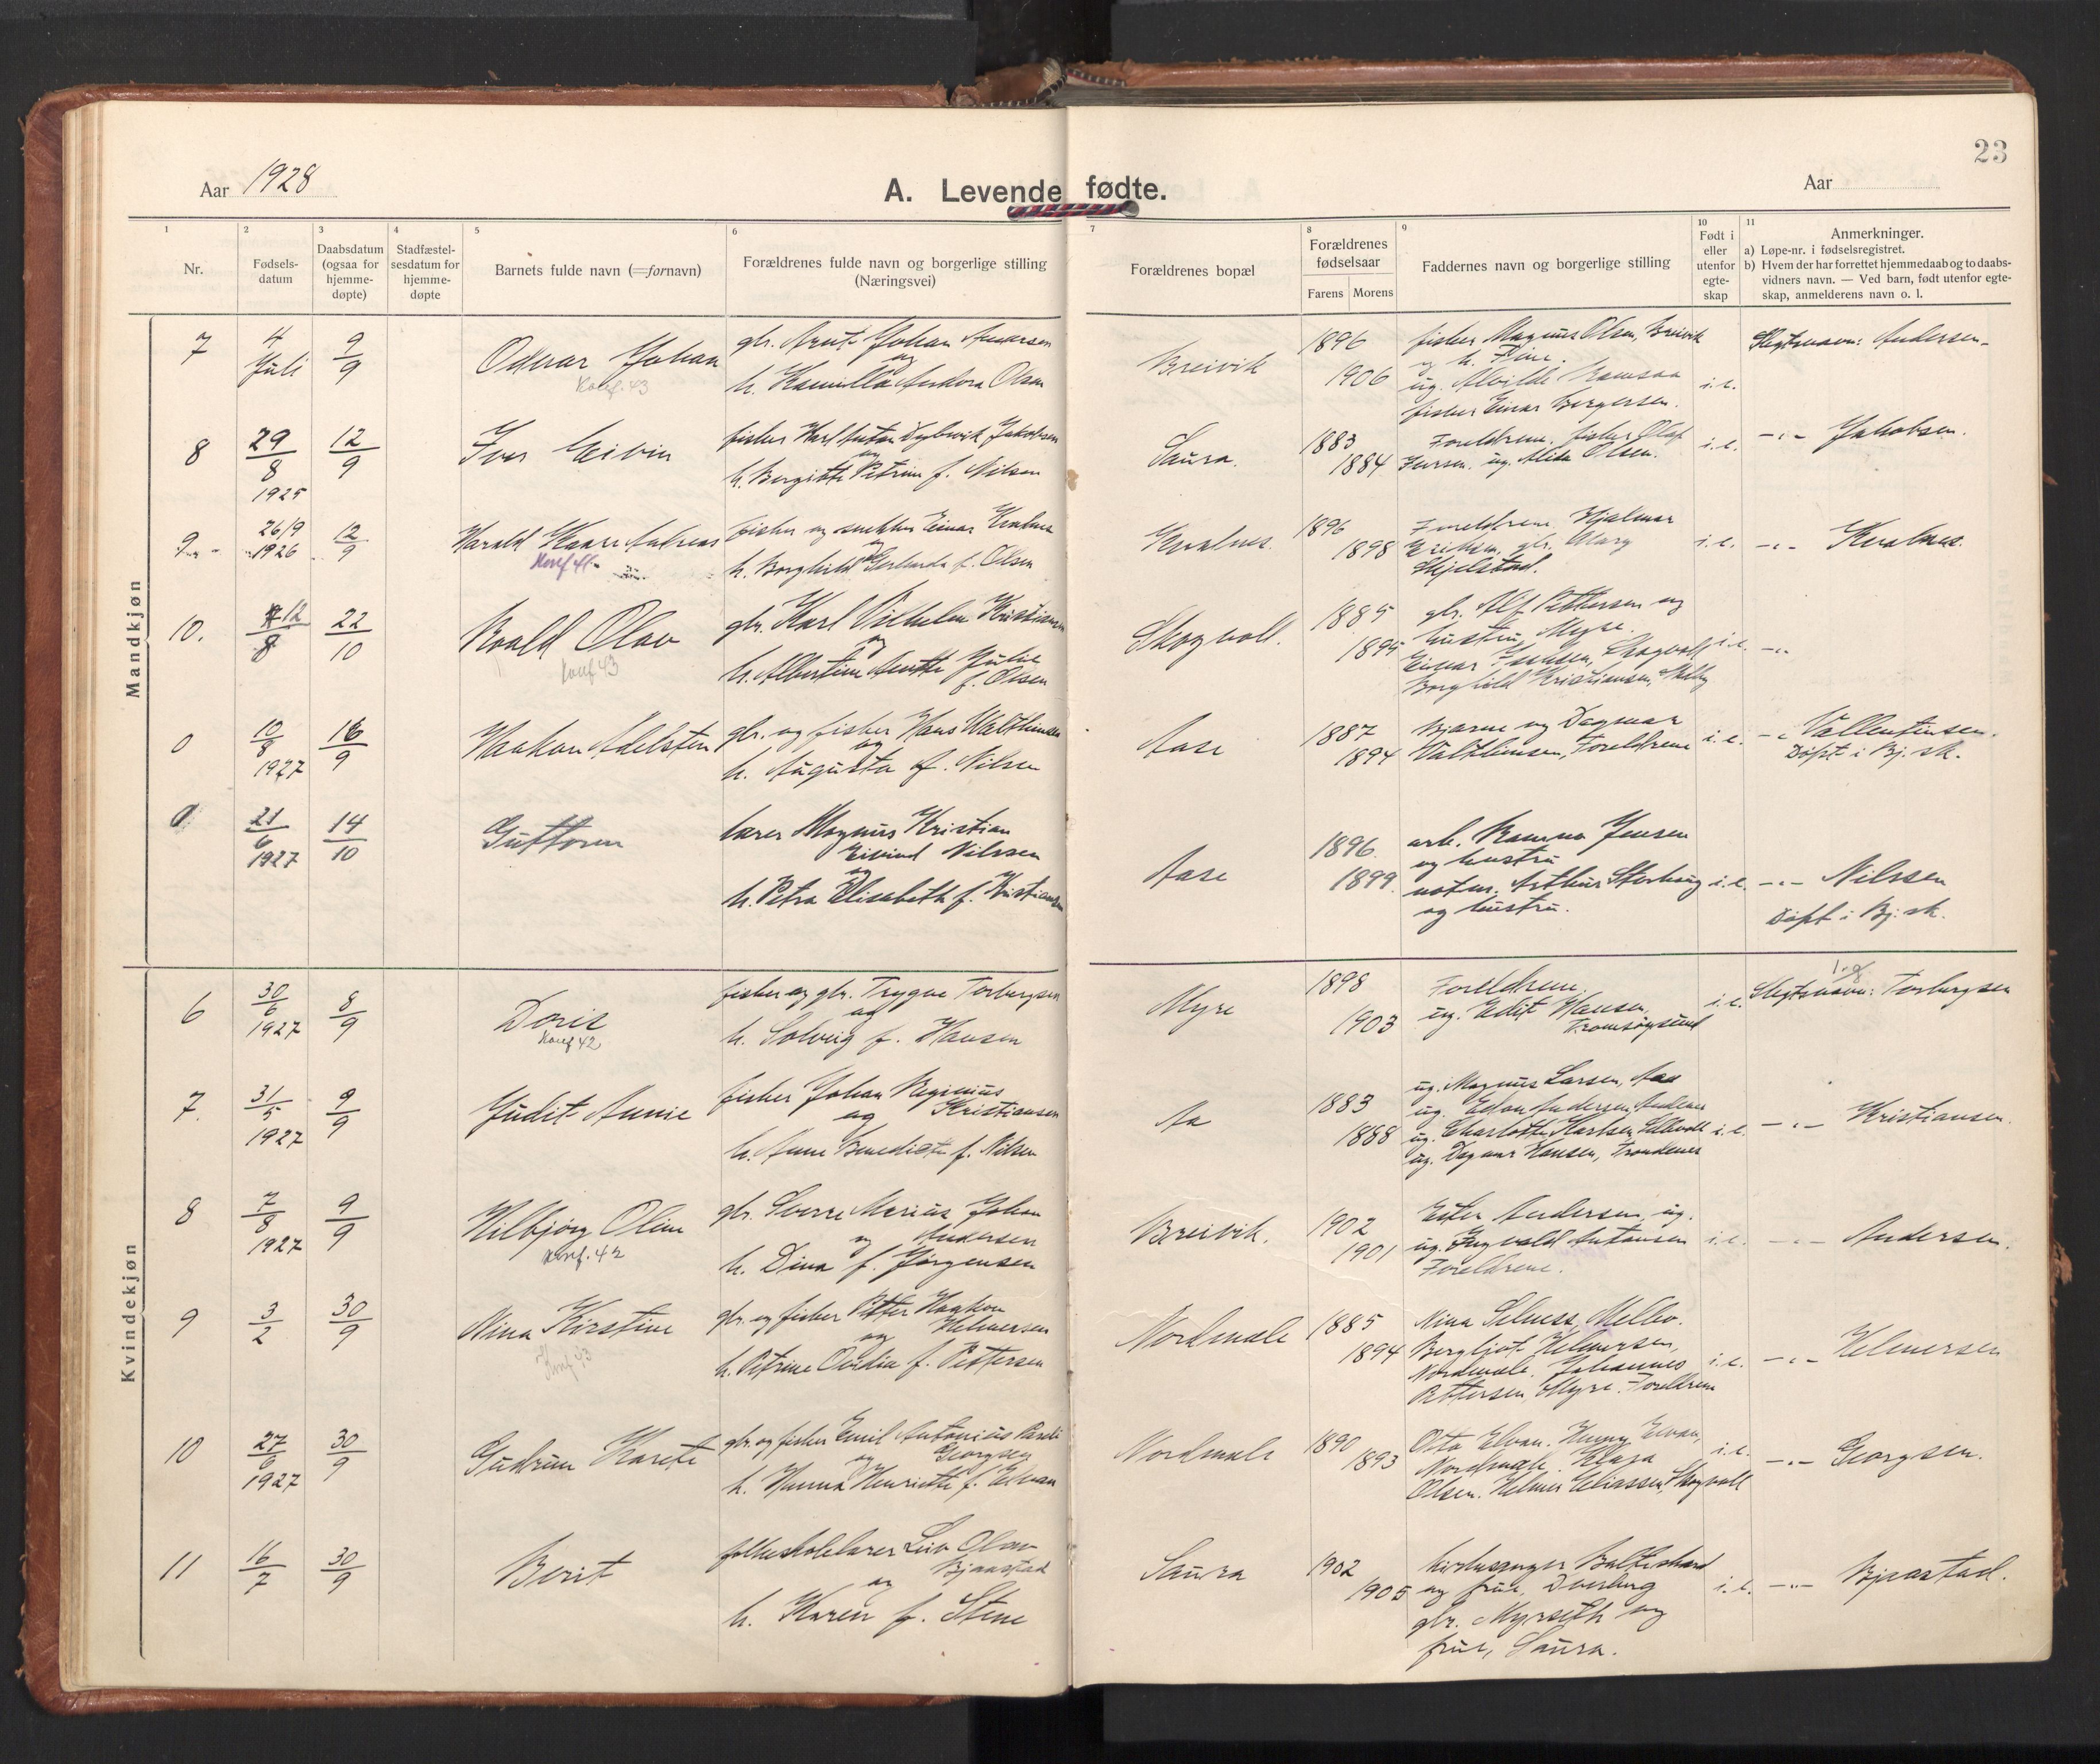 23
Aar 1928
A. Levende fødte.
Aar
1 2 3 4 5 6 7 8 9 10 11
Nr.
Fødsels-
datum
Daabsdatum
(ogsaa for
hjemme-
døpte)
Stadfæstel-
sesdatum for
hjemme-
døpte
Barnets fulde navn (=fornavn)
Forældrenes fulde navn og borgerlige stilling
(Næringsvei)
Forældrenes bopæl
Forældrenes
fødselsaar
Farens Morens
Faddernes navn og borgerlige stilling
Født i
eller
utenfor
egte-
skap
Anmerkninger.
a) Løpe-nr. i fødselsregistret.
b) Hvem der har forrettet hjemmedaab og to daabs-
vidners navn. — Ved barn, født utenfor egte-
skap, anmelderens navn o. l.
Mandkjøn
7
4
Juli
9/9
Odvar Johan
Konf. 43
gbr. Johan Andersen
og
h. Kamilla Olsen
Breivik
1896
1906
fisker Magnus Olsen, Breivik
og h.
ug. Alvilde
fisker Einar Bergersen.
i.e.
Slegtsnavn: Andersen
8
29/8
1925
12/9
Iver Eivin
fisker Karl Anton Dybvik Jakobsen
og
h. Bergitte Petrine f. Nilsen
Saura.
1883
1884
Foreldrene. fisker Olaf
Iversen. ug. Alida Olsen.
i.e.
-"- Jakobsen.
9
26/9
1926
12/9
Harald Kaare Andreas
Konf 41
fisker og snekker Einar Kvalnes
og
h. Borghild Gerharda f. Olsen
Kvalnes.
1896
1898
Foreldrene Hjalmar
Eriksen, gbr.
Skjelstad.
i.e.
-"- Kvalnes.
10.
12/8
22/10
Roald Olav
Konf 43
gbr. Karl Vilhelm Kristiansen
og
h. Albertine Anette Julie
f. Olsen
Skogvoll.
1885
1895
gbr. Alf Pettersen og
hustru, Myre.
Einar Skogvoll,
Borghild Kristiansen,
i.e.
-"-
0
10/8
1927
16/9
Haakon Adelsten
gbr. og fisker Hans Walthinsen
og
h. Augusta f. Nilsen
Aase
1887
1894
Bjarne og Dagmar
Walthinsen, Foreldrene
i.e.
-"- Vallentinsen.
Døpt i Bj. sk.
0
21/6
1927
14/10
Guttorm
lærer Magnus Kristian
Eivind Nilssen
og
h. Petra Elisabeth f. Kristiansen
Aase
1896
1899
arb. Jensen
og hustru
Arthur Storborg
og hustru.
i.e.
-"- Nilssen
Døpt i Bj. sk.
Kvindekjøn
6
30/6
1927
8/9
Doris
Konf 42
fisker og gbr. Trygve Torbergsen
og
h. Solveig f. Hansen
Myre
1898
1903
Foreldrene.
ug. Edit Hansen,
Tromsøysund
i.e.
Slegtsnavn: Torbergsen
7.
31/5
1927
9/9
Judit Annie
fisker Johan Reginius
og Kristiansen
h. Anne Benedicte f. Nilsen
Aa
1883
1888
ug. Magnus Larsen, Aa
ug. Edvan Andersen, Andenes
ug. Charlotte Karlsen
ug. Dagmar Hansen, Trondenes
i.e.
-"- Kristiansen.
8
7/8
1927
9/9
Hilbjørg Oline
Konf. 42
gbr. Sverre Marius Johan
og Andersen
h. Dina f. Jørgensen
Breivik.
1902
1901
Ester Andersen, ug.
ug. Ingvald Antonsen
Foreldrene.
i.e.
-"- Andersen.
9
3/2
30/9
Nina Kirstine
Konf 43
gbr. og fisker Petter Haakon
og Helmersen
h. Petrine Ovidia f. Pettersen
Nordmæle
1885
1894
Nina Selness, Melbo.
Bergljot Helmersen,
Nordmæle. Johannes
Pettersen, Myre. Foreldrene
i.e.
-"- Helmersen
10
27/6
1927
30/9
Gudrun Karete
gbr. og fisker Emil Antonius
og Georgsen
h. Hanna Henriette f. Elvan
Nordmæle
1890
1893
Otto Elvan. Elvan,
Nordmæle. Klara
Olsen. Helmer Eliassen, Skogvoll
i.e.
-"- Georgsen.
11
16/7
30/9
Berit
folkeskolelærer Leiv Olav
og Bjaastad
h. Karen f. Stene
Saura
1902
1905
kirkesanger Balteskard
og frue, Dverberg
gbr. Myrseth og
frue, Saura.
i.e.
-"- Bjaastad.